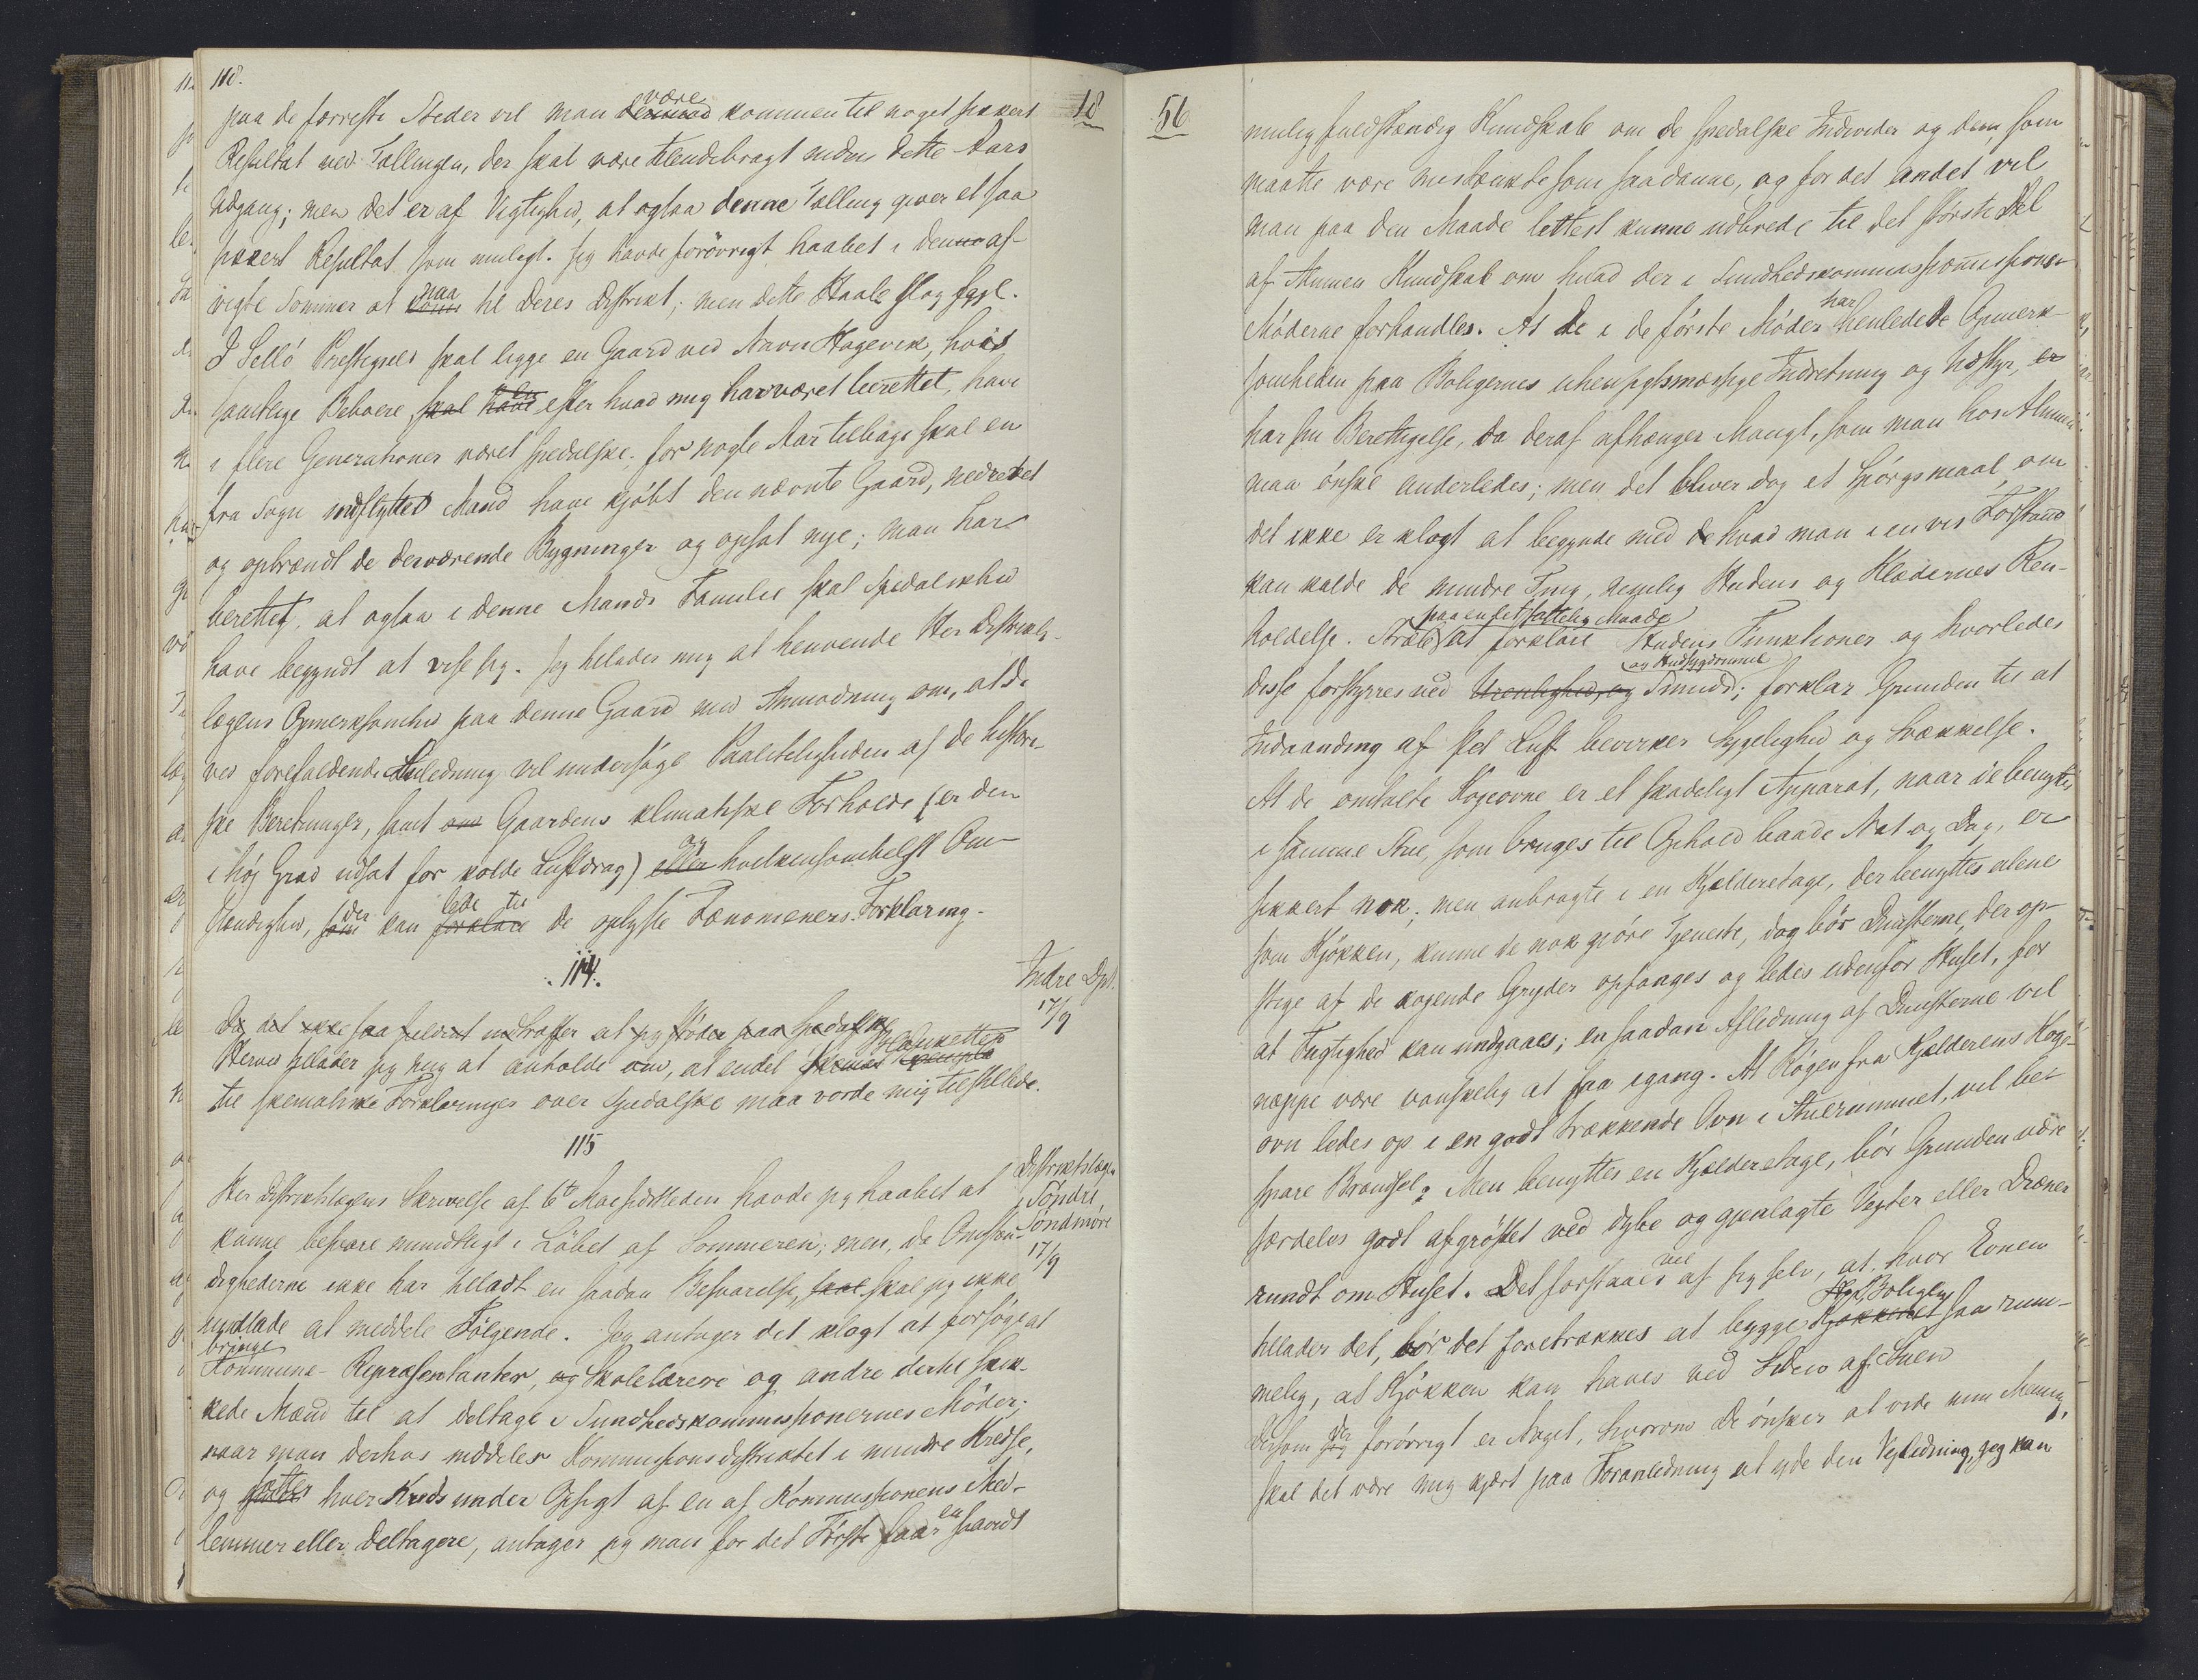 118.
paa de færreste Steder vil man være kommen til noget sikkert
Resultat ved Tællingen, der skal være tilendebragt inden dette Aars
Udgang; men det er af Vigtighed, at ogsaa denne Tælling giver et saa
sikkert Resultat som muligt. Jeg havde forövrigt haabet i denne af-
vigte Sommer at naa til Deres Distrikt; men dette Haab slog fejl.
I Sellö Prestegjeld skal ligge en Gaard ved Navn Hagevik, hvis
samtlige Beboere, skal have efter hvad mig har været berettet, have
i flere Generationer været spedalske; for nogle Aar tilbage skal en
fra Sogn indflyttet Mand have kjöbt den nævnte Gaard, nedrevet
og opbrændt de derværende Bygninger og opsat nye; man har
berettet, at ogsaa i denne Mands Familie skal Spedalskhed
have begyndt at vise sig. Jeg tillader mig at henvende Hr Distrikts-
lægens Opmerksomhed paa denne Gaard med Anmodning om, at De
ved forefaldende Anledning vil undersöge Paalideligheden af de histori-
ske Beretninger, samt om Gaardens klimatiske Forholde (er den
i höj Grad udsat for kolde Luftdrag) eller og hvilkensomhelst Om-
stændighed, som der kan forklare lede til de oplyste Fænomeners Forklaring.
114.
Indre Dpt.
17/9
Da det ikke saa sjeldent indtræffer at jeg stöder paa Spedalske
Herved tillader jeg mig at anholde om, at endel Skemaer Blanketter
til skematiske Forklaringer over Spedalske maa vorde mig tilstillede.
115
Distriktslægen
i Söndre
Söndmöre
17/9
Her Distriktslægens Skrivelse af 6te Mai sidstleden havde jeg haabet at
kunne besvare mundtligt i Löbet af Sommeren; men, da Omstæn-
dighederne ikke har tilladt en saadan Besvarelse, skal skal jeg ikke
undlade at meddele Fölgende. Jeg antager det klogt at forsöge at
bringe
Kommune-Repræsentanter, og Skolelærere og andre dertil skik-
kede Mænd til at deltage i Sundhedskommissionernes Möder;
naar man derhos inddeler Kommissionsdistriktet i mindre Kredse,
og sætter hver Kreds under Opsigt af en af Kommissionens Med-
lemmer eller Deltagere, antager jeg man for det Förste faar en saavidt
18
56
mulig fuldstændig Kundskab om de spedalske Individer og dem, som
maatte være mistænkte som saadanne, og for det andet vil
man paa den Maade lettest kunne udbrede til det störste Del
af Almuen Kundskab om hvad der i Sundhedskommissionens
Möderne forhandles. At De i de förste Möder har henledede Opmerk-
somheden paa Boligernes uhensigtsmæssige Indretning og Udstyr, er
har sin Berettigelse, da deraf afhænger Mangt, som man hos Almuen
maa önske anderledes; men det bliver dog et Spörgsmaal, om
det ikke er klogt at begynde med de hvad man i en vis Forstand
kan kalde de mindre Ting, nemlig Hudens og Klædernes Ren-
holdelse. Stræb at forklare paa en letfattelig Maade Hudens Funktioner og hvorledes
disse forstyrres ved Urenlighed, og Smuds og Hudsygdomme; forklar Grunden til at
Indaanding af slet Luft bevirker Sygelighed og Svækkelse.
At de omtalte Kogeovne er et skadeligt Apparat, naar de benyttes
i samme Stue, som bruges til Ophold baade Nat og Dag, er
sikkert nok; men anbragte i en Kjælderetage, der benyttes alene
som Kjökken, kunne de nok gjöre Tjeneste, dog bör Dunsterne, der op-
stige af de kogende Gryder opfanges og ledes udenfor Huset, for
at Fugtighed kan undgaaes; en saadan Afledning af Dunsterne vil
neppe være vanskelig at faa igang. At Rögen fra Kjælderens Koge-
ovn ledes op i en godt trækkende Ovn i Stuerummet, vil be-
spare Brændsel. Men benyttes en Kjælderetage, bör Grunden være
særdeles godt afgröftet ved dybe og gjenlagte Vejter eller Dræner
rundt om Huset. Det forstaaes vel af sig selv, at, hvor Evnen
tillader det, bör det foretrækkes at bygge Kjökkenet Boligen saa rum-
melig, at Kjökken kan haves ved Siden af Stuen
Dersom der forövrigt er Noget, hvorom De önsker at vide min Mening,
skal det være mig kjært paa Foranledning at yde den Vejledning, jeg kan